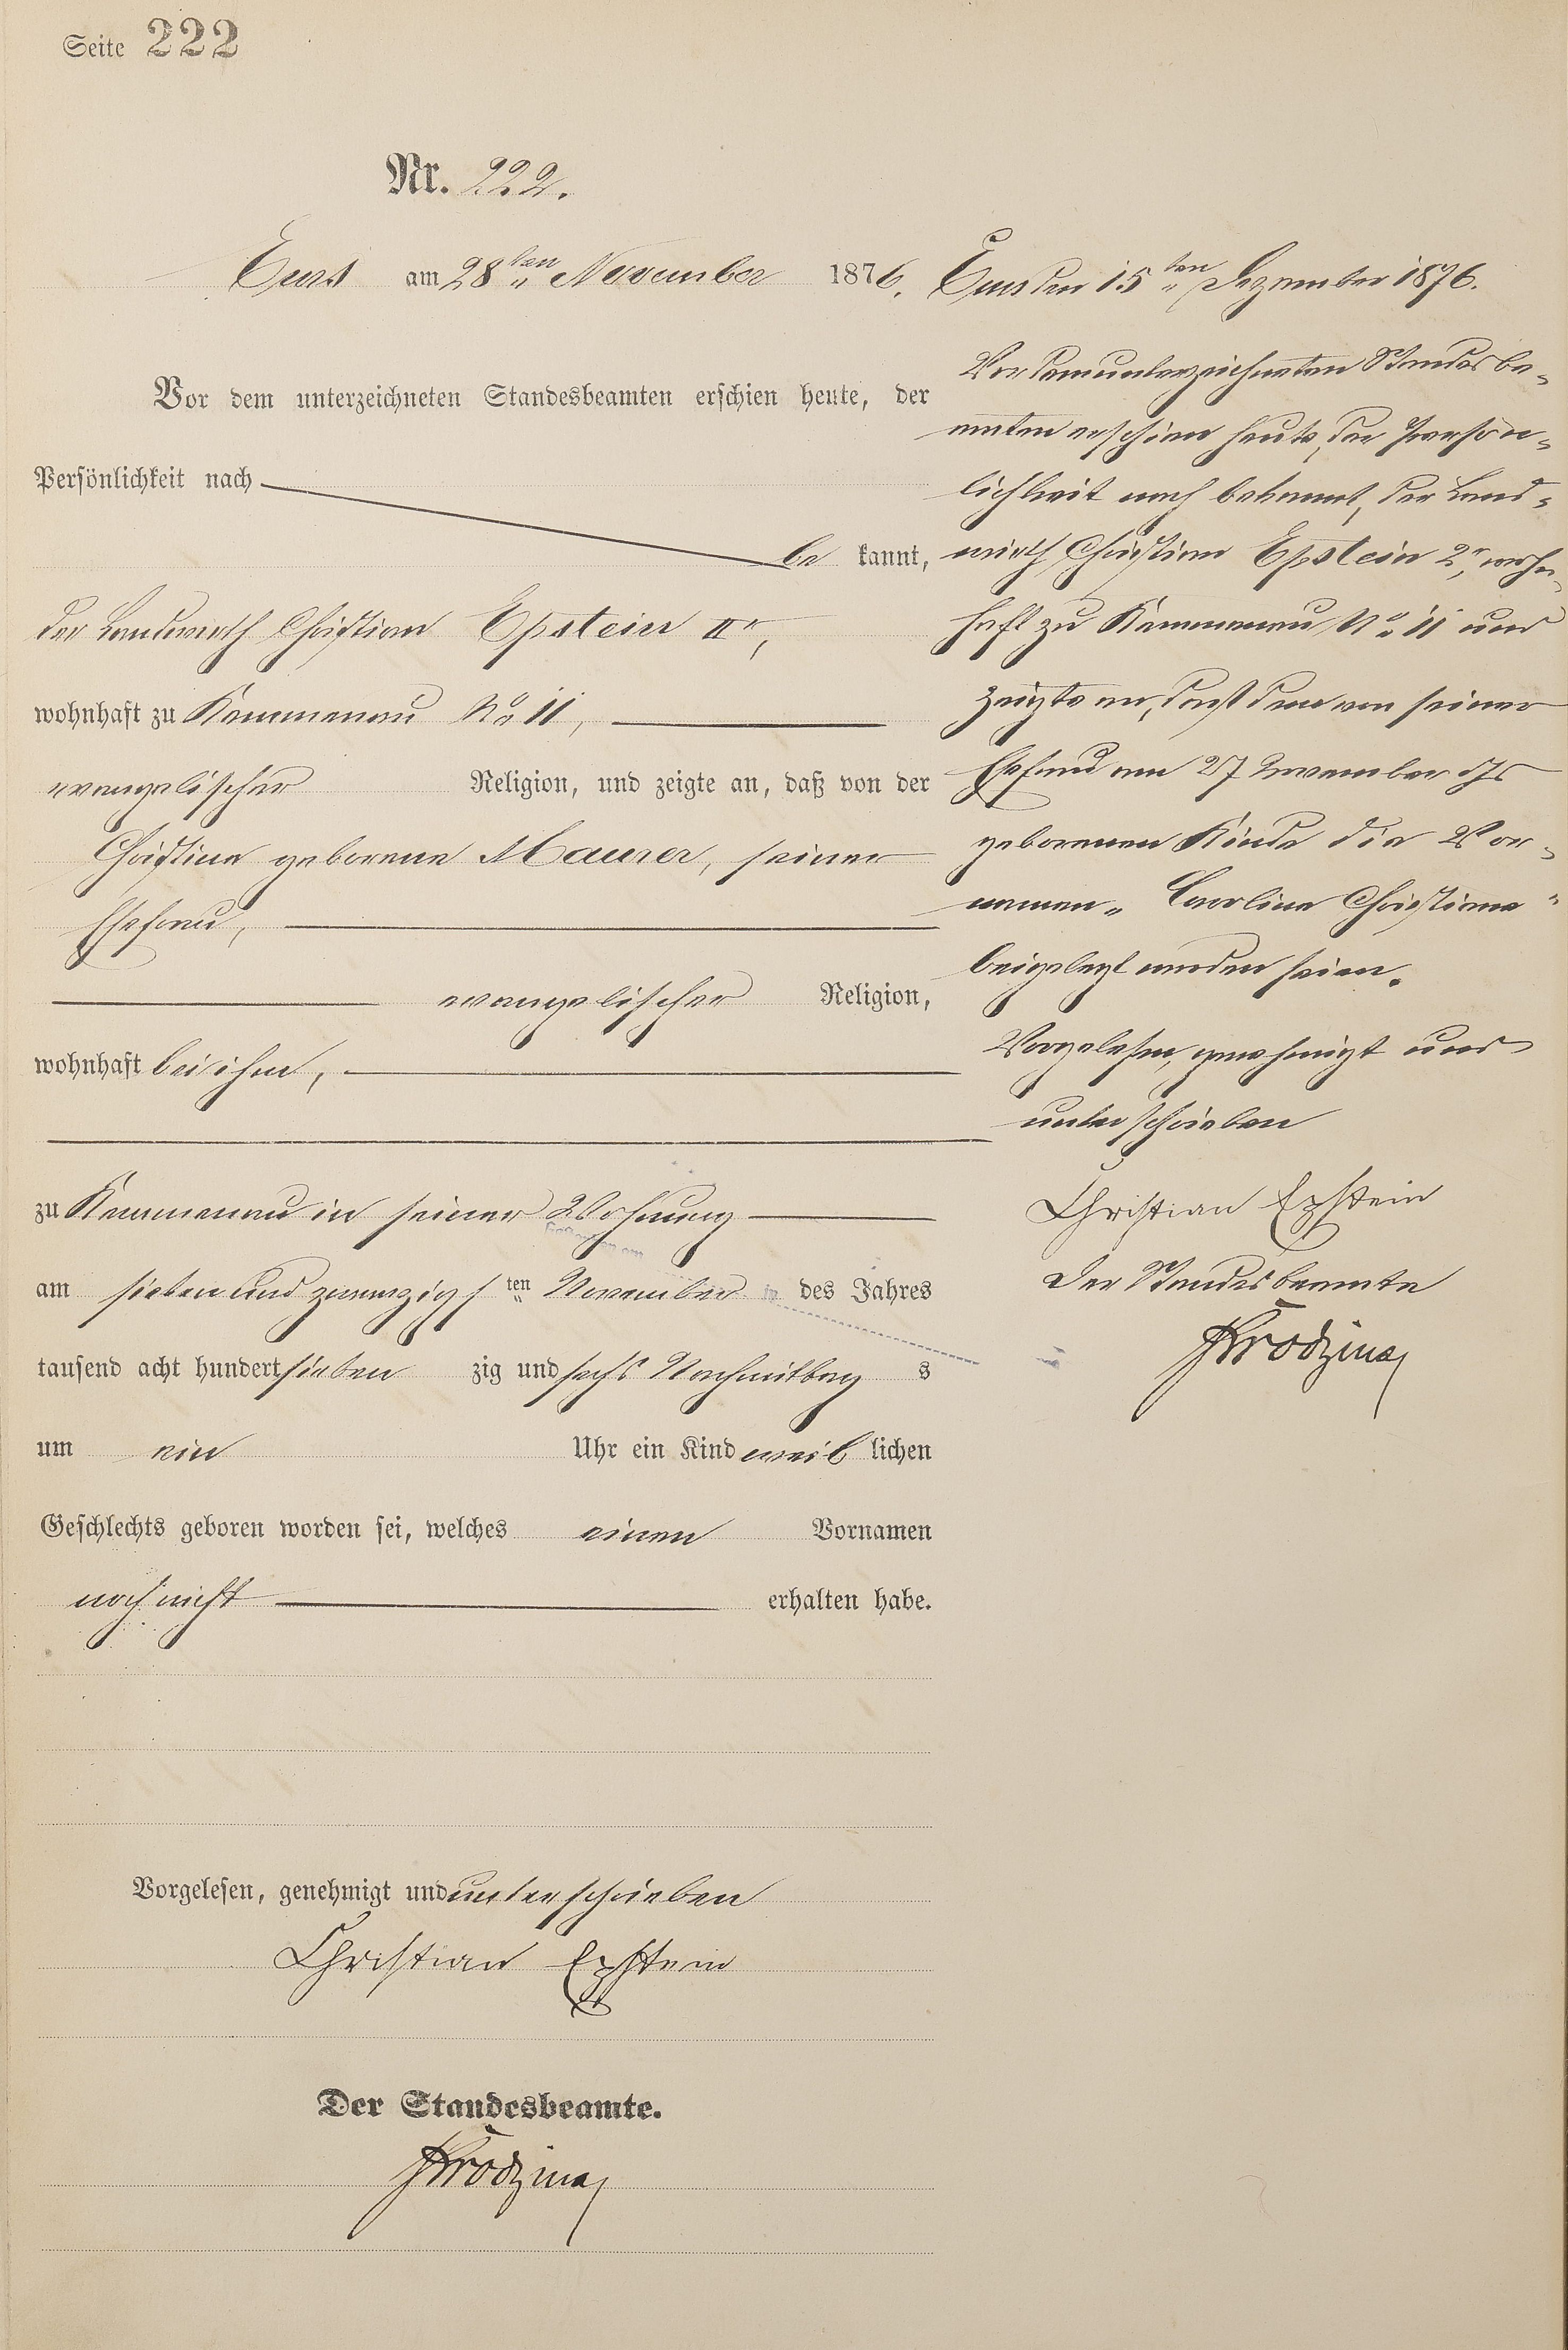 Seite 222
Nr. 222.
Ems am 28ten November 1876.
Vor dem unterzeichneten Standesbeamten erschien heute, der
Persönlichkeit nach
be kannt,
der Landwirth Christian Epstein IIr,
wohnhaft zu Kemmenau No 11,
evangelischer Religion, und zeigte an, daß von der
Christine geborene Maurer, seiner
Ehefrau,
evangelischer Religion,
wohnhaft bei ihm,
zu Kemmenau in seiner Wohnung
am sieben und zwanzigsten November des Jahres
tausend acht hundert sieben zig und sechs Nachmittag s
um ein Uhr ein Kind weib lichen
Geschlechts geboren worden sei, welches einen Vornamen
noch nicht erhalten habe.
Vorgelesen, genehmigt und unterschrieben
Christian Epstein
Der Standesbeamte.
Ems den 15ten Dezember 1876.
Vor dem unterzeichneten Standesbe-
amten erschien heute, der Persön-
lichkeit nach bekannt, der Land-
wirth Christian Epstein 2r, wohn-
haft zu Kemmenau No 11 und
zeigte an, daß dem von seiner
Ehefrau am 27 November
geborenen Kinde die Vor-
namen "Caroline Christiane"
beigelegt worden seien.
Vorgelesen, genehmigt und
unterschrieben
Christian Epstein
Der Standesbeamte